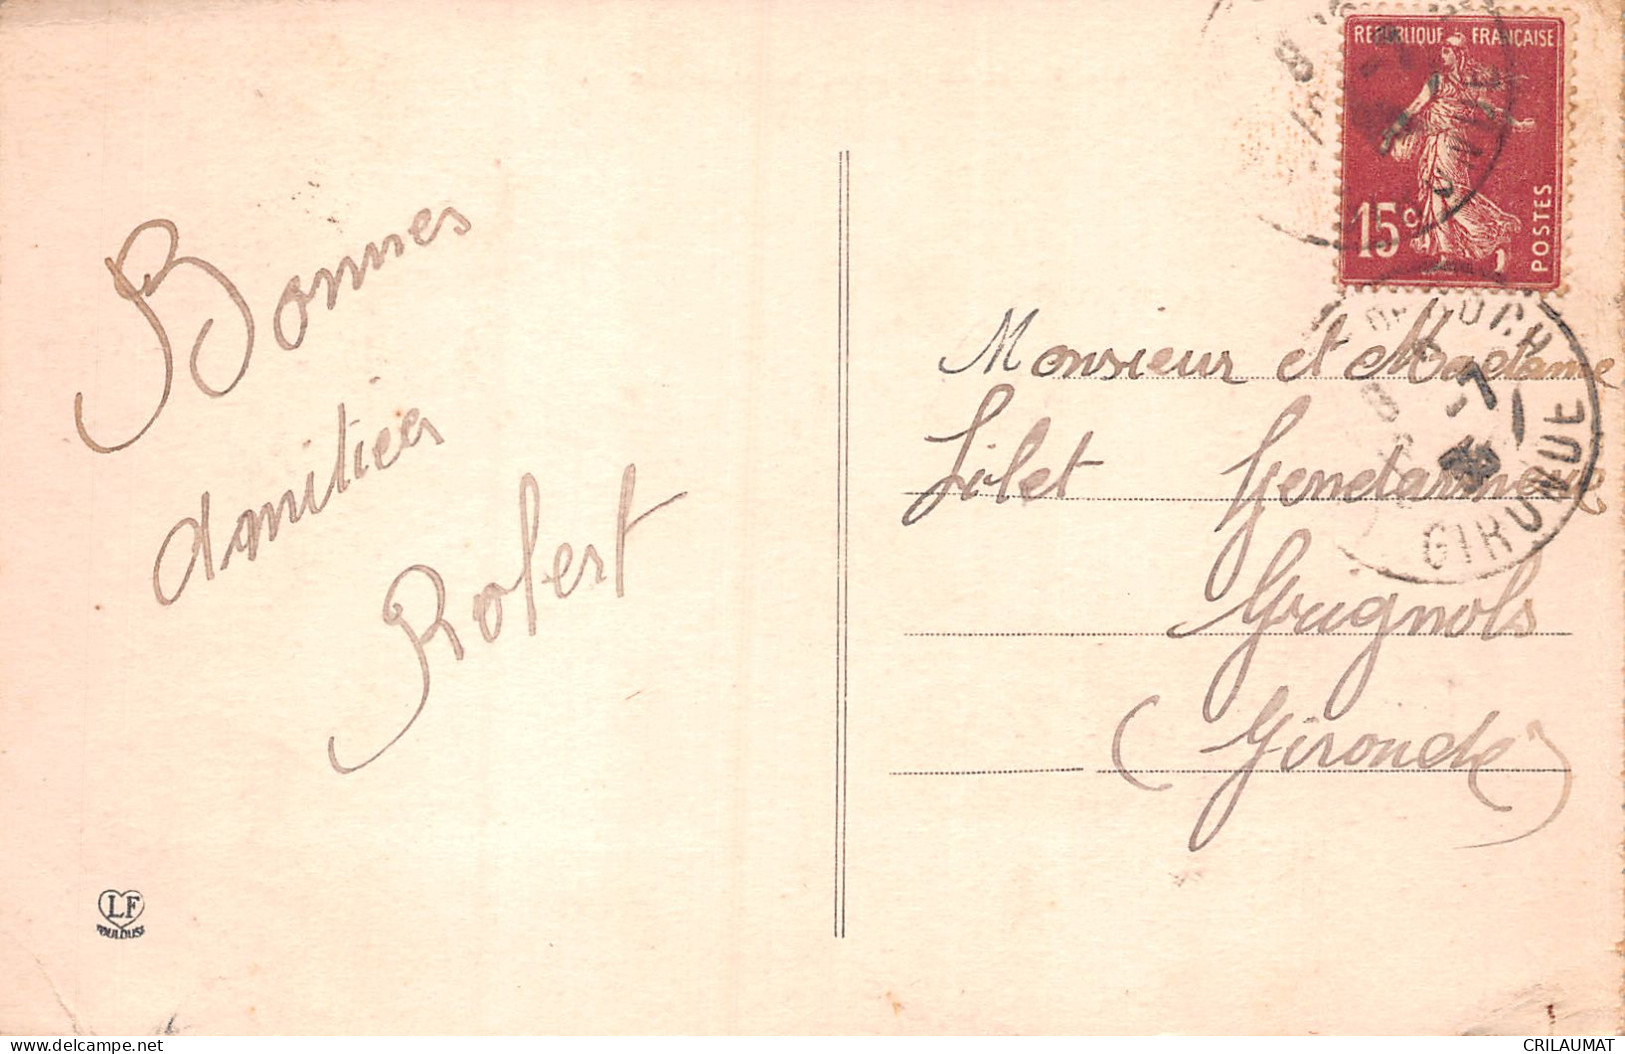 Bonnes
amitiés
Robert
LF
TOULOUSE
REPUBLIQUE FRANÇAISE
15c
POSTES
Monsieur et Madame
Filet Gendarme
Grignols
(Gironde)
8
-7
GIRONDE
delcampe.net
CRILAUMAT